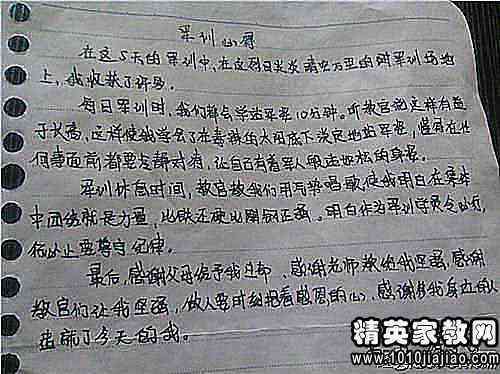 军训心得
在这5天的军训中,在这烈日炎炎晴空万里的时军训场地
上,我收获了许多。
每日军训时,我们都会学站军姿10分钟。听教官说这样有益
于长高,这样使我学会了在毒辣的太阳底下淡定地站军姿,懂得在任
何事面前都要发静对待,让自己有着军人明志如松的身躯。
军训休息时间,教官教我们用写势唱歌使我明白在集体
中团结就是力量,比铁还硬比刚刚还强。明白作为军训学员令必行,
何止要尊守纪律。
最后,感谢父母给予我过都、感谢老师教给我坚强、感谢
教官们让我坚强,做人要时刻抱着感恩的心,感谢我身边的人
造就了今天的我。
精英家教网
www.1010jiajiao.com